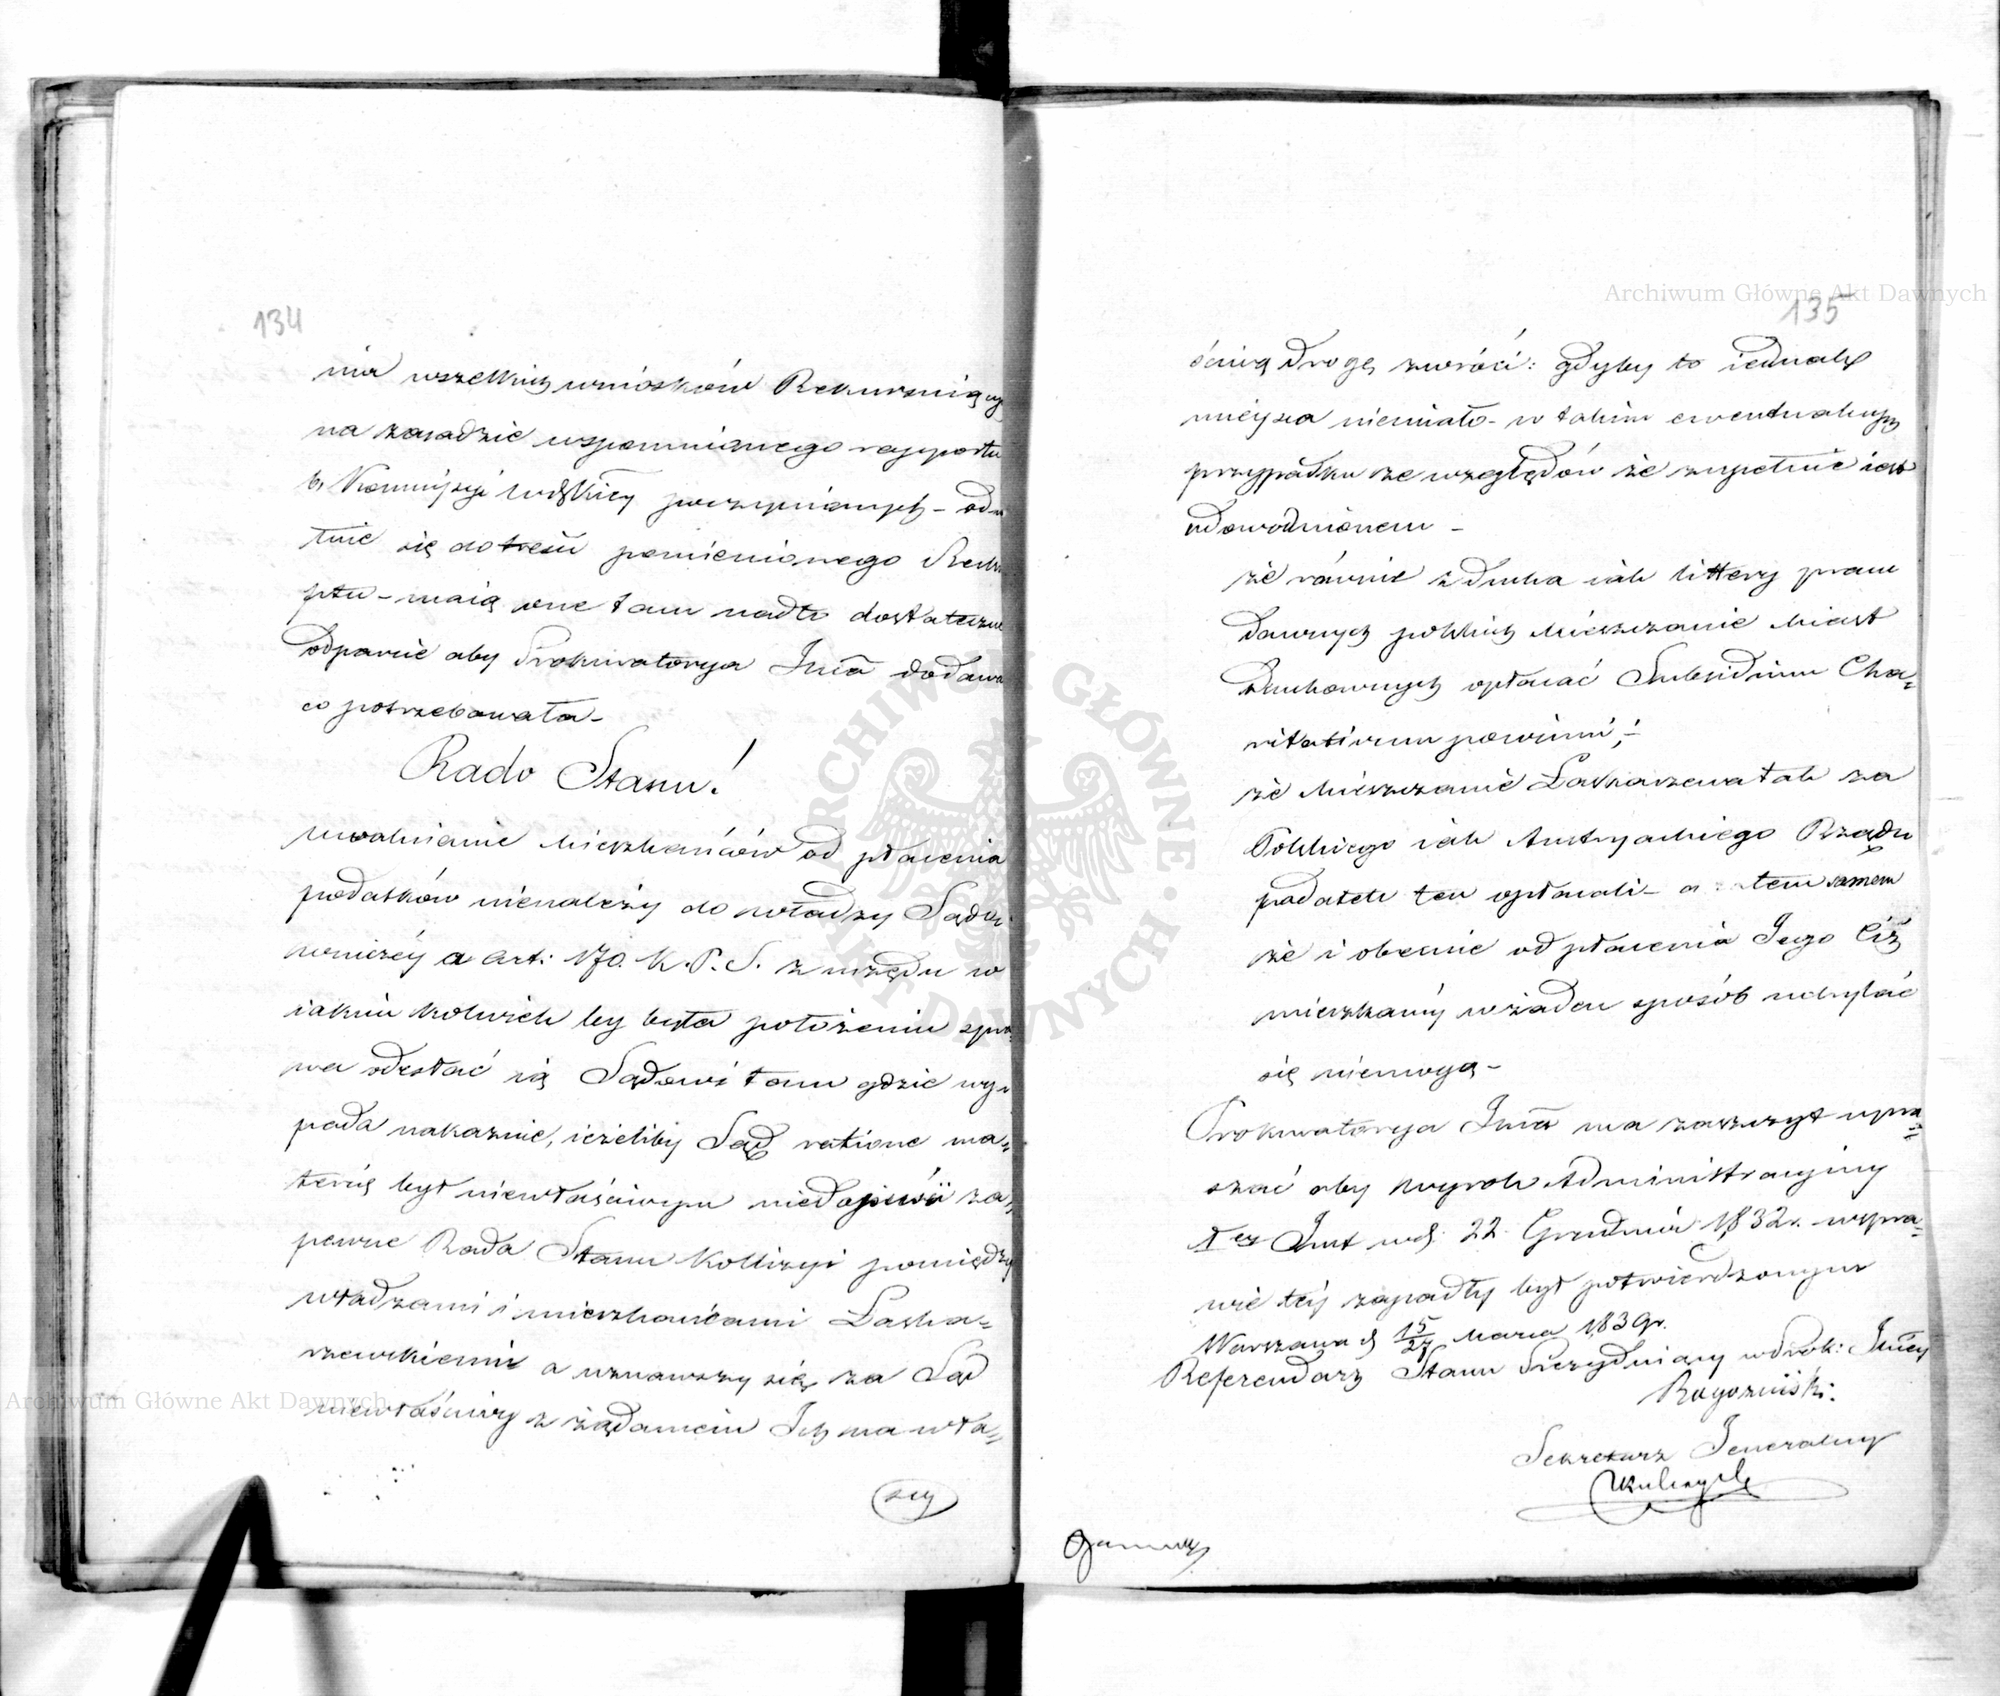 134
nia wszelkich wniosków Rekurniący
na zasadzie wspomnionego rapportu
b. Kommissyi Ludzkiey poczynionych – od
tnie się do treści pomienionego
ptu – maią one tam nadto dostateczne
odparcie aby Prokuratorya Jnła dodawa
co potrzebowała –
Rado Stanu!
uwalnianie Mieszkańców od płacenia
podatków nienależy do władzy Sądo
wniczéy a art: 170. K. P. S. z urzędu w
iakim kolwiek by była położeniu spra
wa odesłać ią Sądowi tam gdzie wy
pada nakazuie, ieżeliby Sąd ratione ma=
teriæ był niewłaściwym niedopuści za=
pewne Rada Stanu Kollizyi pomiędzy
władzami i mieszkańcami Łaska=
rzewskiemi a uznawszy się za Sąd
niewłaściwy z żądaniem Ich na wła=
ściwą
Archiwum Główne Akt Dawnych
135
ściwą drogę zwróci: gdyby to iednak
mieysca niemiało – w takim ewentualnym
przypadku ze względów że zupełnie iest
udowodnionem –
że równie z ducha iak littery praw
dawnych polskich Mieszczanie Miast
duchownych opłacać Subsidium Cha=
ritativum powinni, –
że Mieszczanie Łaskarzewa tak za
Polskiego iak Austryackiego Rządu
podatek ten opłacali – a tem samem
że i obecnie od płacenia Jego Ciż
mieszkańcy w żaden sposób uchylać
się niemogą –
Prokuratorya Jnła ma zaszczyt upra=
szać aby wyrok Administracyiny
1ey Inst wd. 22. Grudnia 1832 r. wspra=
wie téy zapadły był potwierdzonym
Warszawa d 15/27 Marca 1839 r.
Referendarz Stanu Prezyduiący w Prok: Jnłey
Rogoziński.
Sekretarz Jeneralny
Archiwum Główne Akt Dawnych
ARCHIWUM GŁÓWNE AKT DAWNYCH